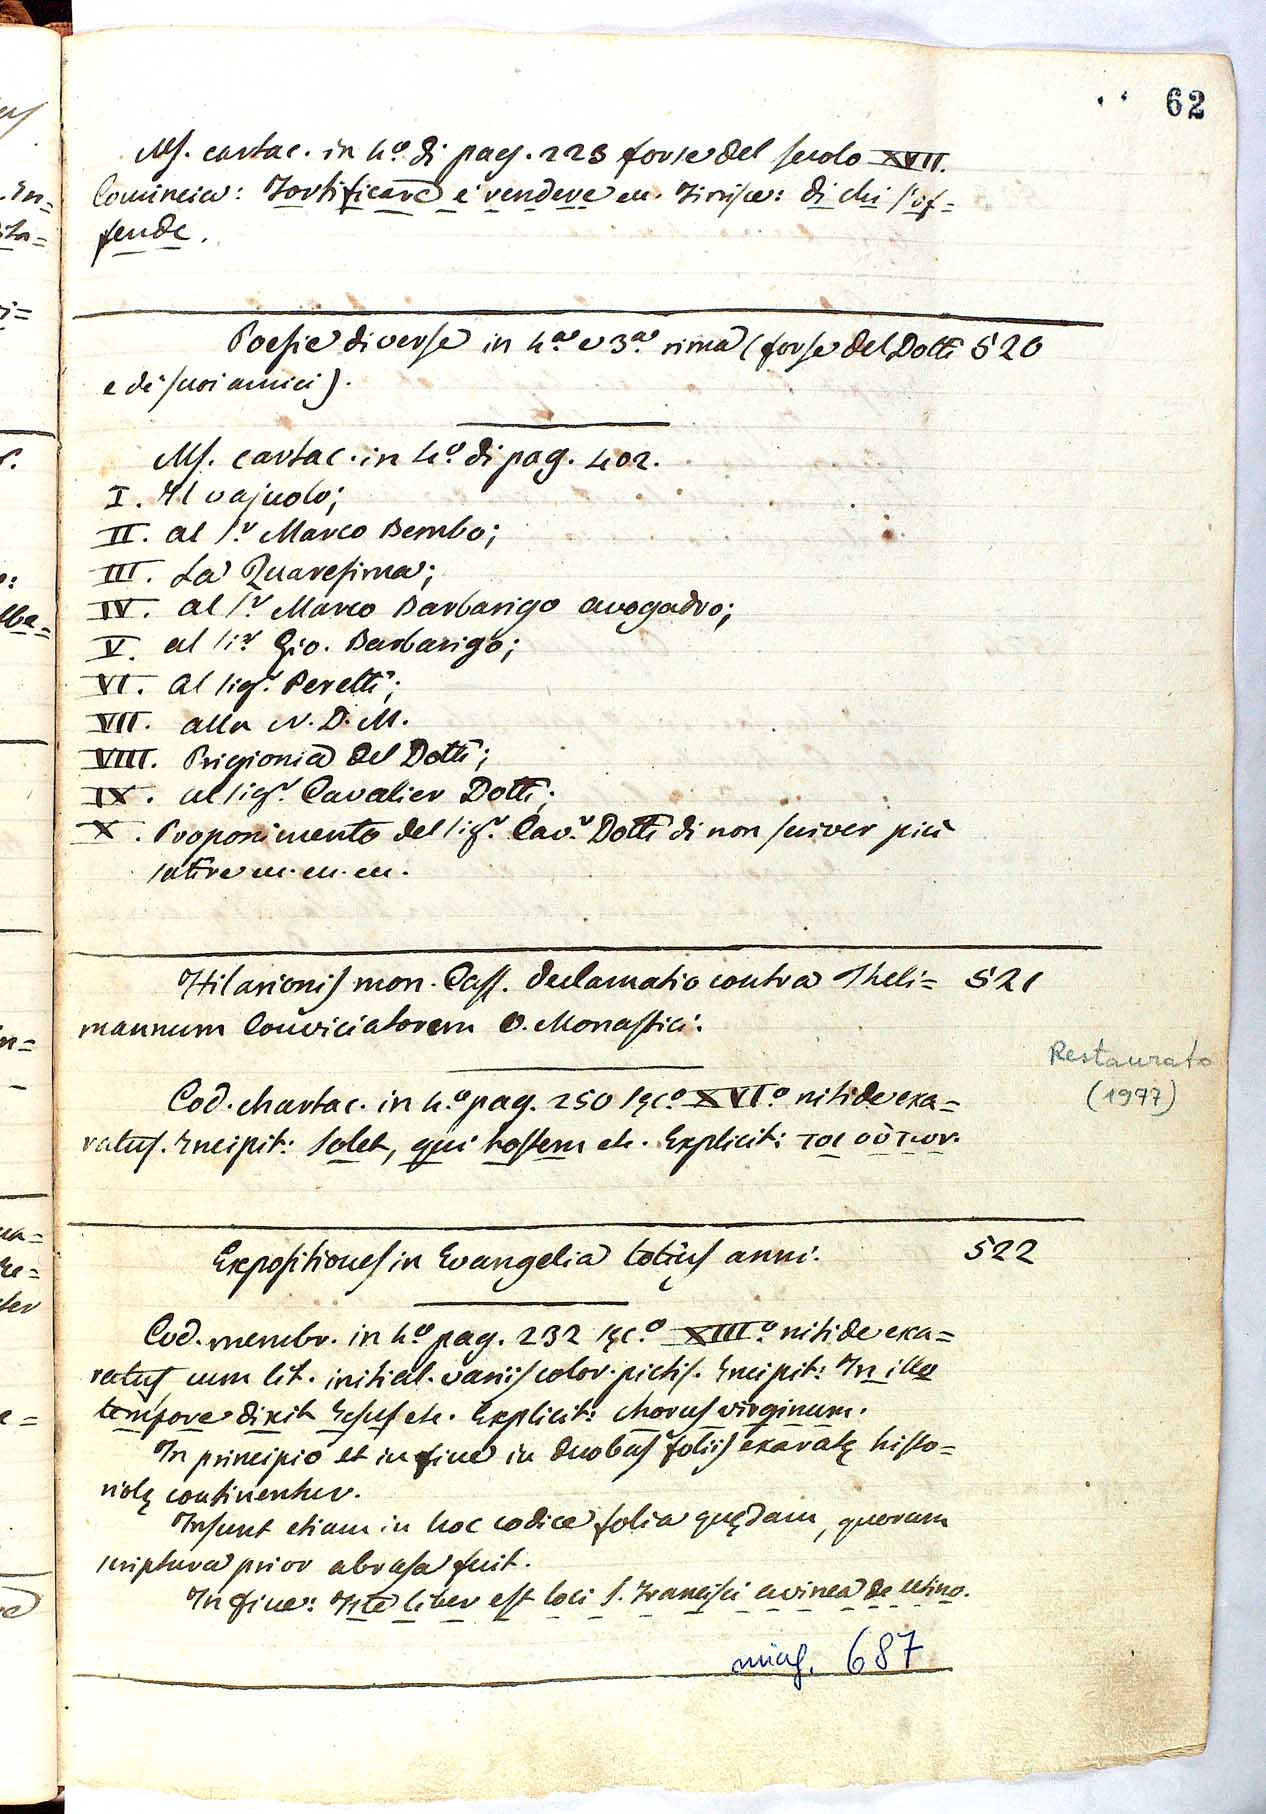 62
Ms. cartac. in 4º di pag. 223 forse del secolo XVII.
Comincia: Fortificare è rendere ec. Finisce: di chi s'of=
fende.
Poesie diverse in 4.ª e 3.ª rima (forse del Dotti 520
e de' suoi amici).
Ms. cartac. in 4.º di pag. 402.
I. Il vajuolo;
II. al S.r Marco Bembo;
III. La Quaresima;
IV. al S.r Marco Barbarigo avogadro;
V. al si.r Gio. Barbarigo;
VI. al sig.r Peretti;
VII. alla N. D. M.
VIII. Prigionia del Dotti;
IX. al sig.r Cavalier Dotti;
X. Proponimento del sig.r Cav.r Dotti di non scriver più
satire ec. ec. ec.
Hilarionis mon. Cass. declamatio contra Theli= 521
mannum conviciatorem O. Monastici.
Restaurato
(1977)
Cod. chartac. in 4.º pag. 250 sęc.º XVI.º nitide exa=
ratus. Incipit: Solet, qui hostem etc. Explicit: τοιούτων.
Expositiones in Evangelia totius anni. 522
Cod. membr. in 4.º pag. 232 sęc.º XIII.º nitide exa=
ratus, cum lit. initial. variis color. pictis. Incipit: In illo
tempore dixit Iesus etc. Explicit: chorus virginum.
In principio et in fine in duobus foliis exaratę histo=
riolę continentur.
Insunt etiam in hoc codice folia quędam, quorum
scriptura prior abrasa fuit.
In fine: Iste liber est loci S. Francisci a vinea de Utino.
687